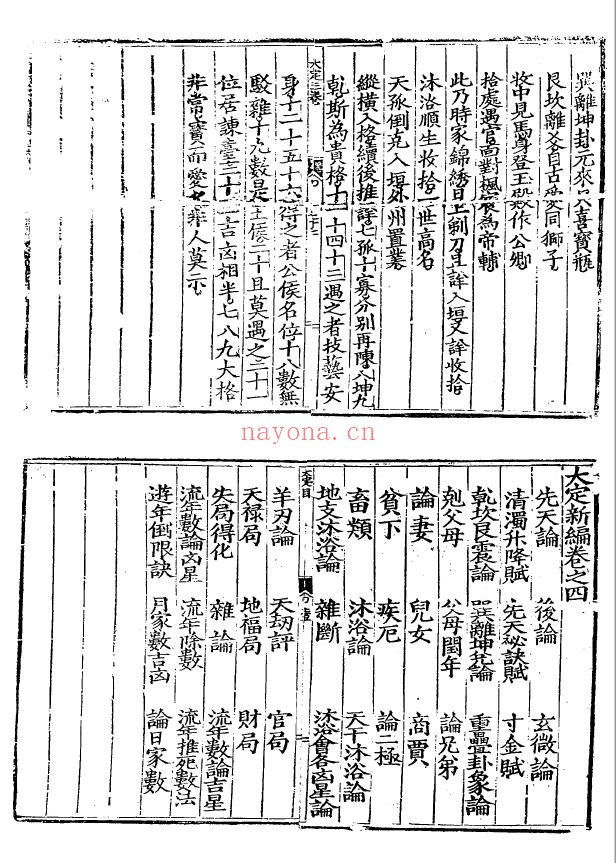 巽離坤卦元來只喜寶瓶
艮坎離爻自古受同獅子
妝中見馬身登玉殿作公卿
拾處遇官面對楓宸為帝輔
此乃時家錦綉日上剃刀且詳入垣又詳收拾
沐浴順生收拾一世高名
天孤倒克入垣外州置業
縱橫入格續後推詳七孤十寡分别再陳八坤九
乾斯為貴格十一十四十三遇之者技藝安
大定三卷
身十二十五十六得之者公侯名位十八數無
駁雜十九數是王侯二十且莫遇之二十一
位居諫臺三十二吉凶相半七八九大格
非常寶而愛之非人莫示
nayona.cn
大定新編卷之四
先天論 後論 玄微論
清濁升降賦 先天祕訣賦 寸金賦
乾坎艮震論 巽離坤兊論 重疊卦象論
剋父母 父母閏年 論兄弟
論妻 兒女 商賈
貧下 疾厄 論二極
畜類 沐浴論 天干沐浴論
地支沐浴論 雜斷 沐浴會各凶星論
羊刃論 天刼評 官局
天祿局 地福局 財局
失局得化 雜論 流年數論吉星
流年數論凶星 流年除數 流年推死數法
遊年倒限訣 月家數吉凶 論日家數